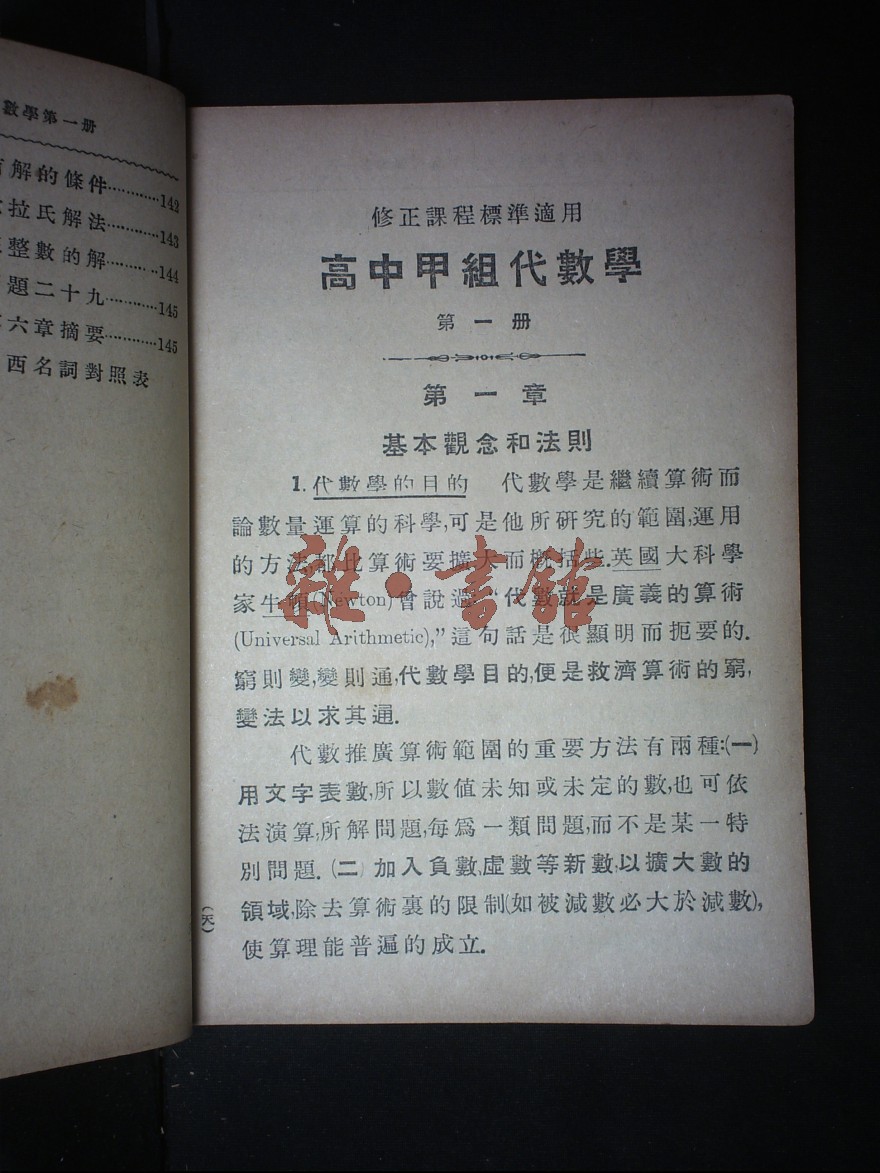 數學第一册
解的條件............142
拉氏解法............143
整數的解............144
題二十九............145
六章摘要............145
西名詞對照表
修正課程標準適用
高中甲組代數學
第一册
第一章
基本觀念和法則
1. 代數學的目的 代數學是繼續算術而
論數量運算的科學,可是他所研究的範圍,運用
的方法,都比算術要擴大而概括些.英國大科學
家牛頓(Newton)曾說過,“代數就是廣義的算術
(Universal Arithmetic),”這句話是很顯明而扼要的.
窮則變,變則通,代數學目的,便是救濟算術的窮,
變法以求其通.
代數推廣算術範圍的重要方法有兩種:(一)
用文字表數,所以數值未知或未定的數,也可依
法演算,所解問題,每爲一類問題,而不是某一特
別問題. (二) 加入負數,虛數等新數,以擴大數的
領域,除去算術裏的限制(如被減數必大於減數),
使算理能普遍的成立.
雜·書館